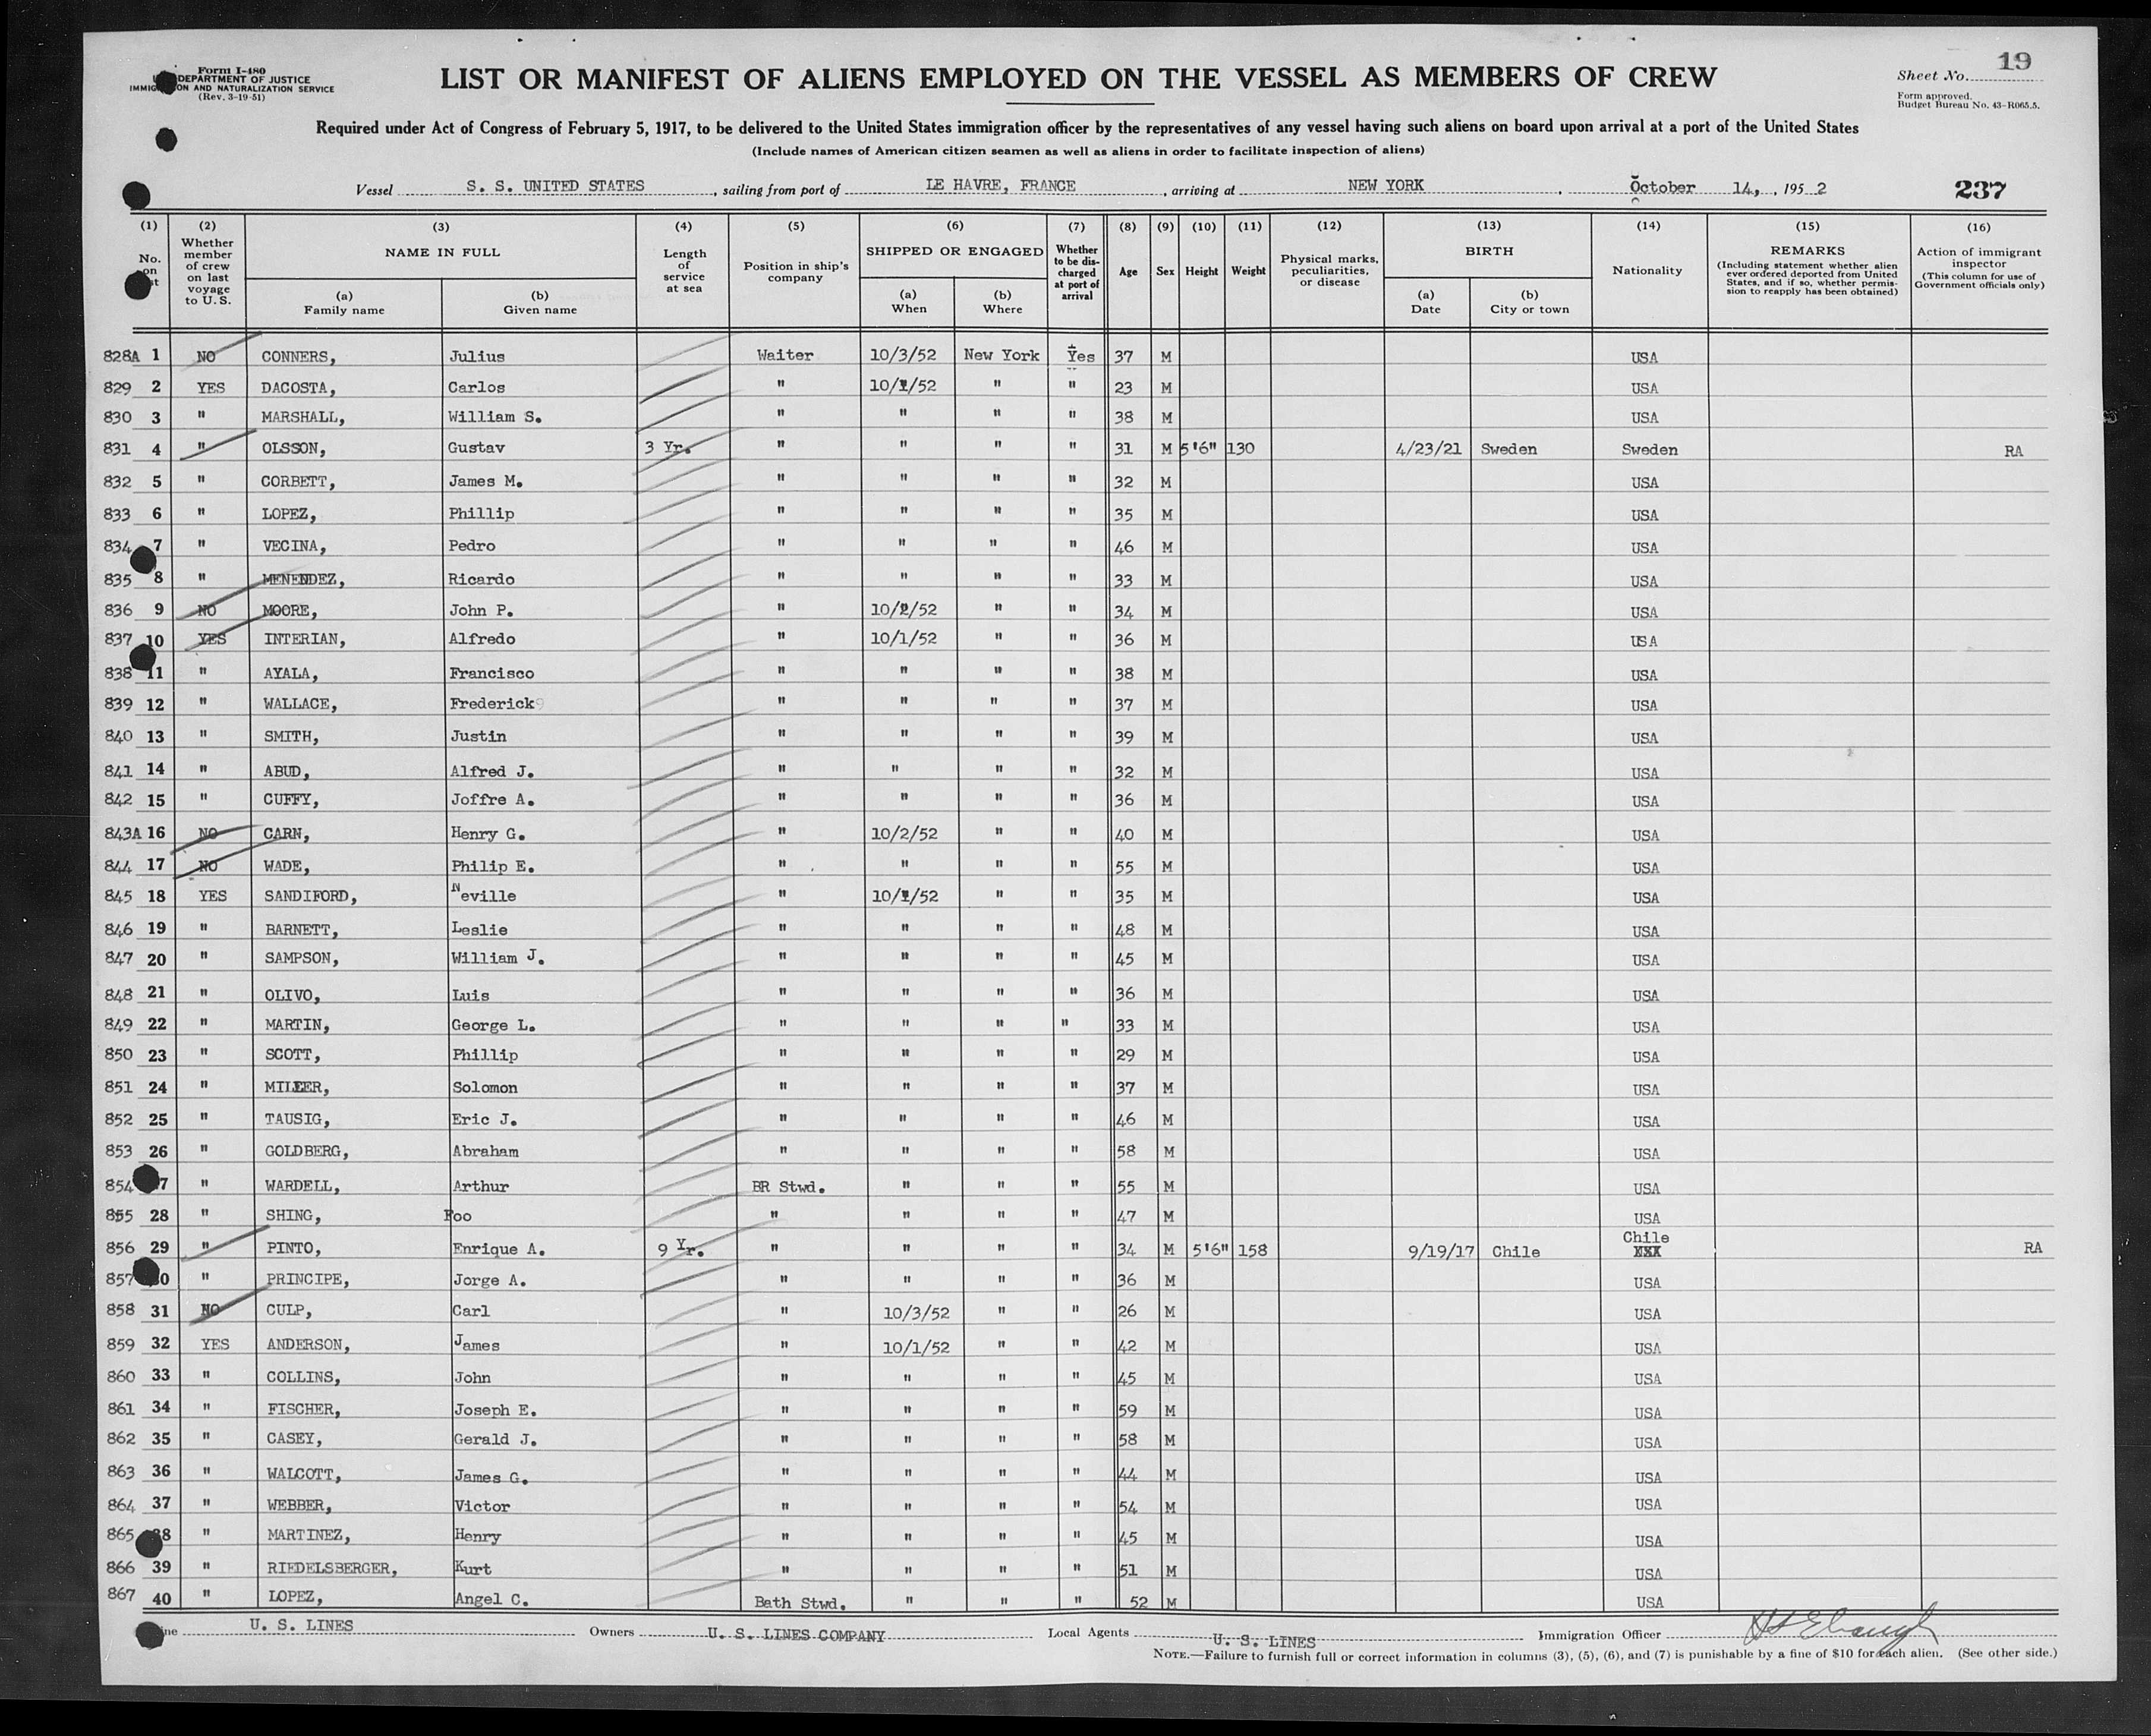 Form I-480
U. S. DEPARTMENT OF JUSTICE
IMMIGRATION AND NATURALIZATION SERVICE
(Rev. 3-19-51)
LIST OR MANIFEST OF ALIENS EMPLOYED ON THE VESSEL AS MEMBERS OF CREW
19
Sheet No.
Form approved.
Budget Bureau No. 43-R065.5.
Required under Act of Congress of February 5, 1917, to be delivered to the United States immigration officer by the representatives of any vessel having such aliens on board upon arrival at a port of the United States
(Include names of American citizen seamen as well as aliens in order to facilitate inspection of aliens)
Vessel S. S. UNITED STATES, sailing from port of LE HAVRE, FRANCE, arriving at NEW YORK, October 14, , 1952 237
(1) (2) (3) (4) (5) (6) (7) (8) (9) (10) (11) (12) (13) (14) (15) (16)
No. on list
Whether member of crew on last voyage to U. S.
NAME IN FULL
(a) Family name
(b) Given name
Length of service at sea
Position in ship's company
SHIPPED OR ENGAGED
(a) When
(b) Where
Whether to be discharged at port of arrival
Age
Sex
Height
Weight
Physical marks, peculiarities, or disease
BIRTH
(a) Date
(b) City or town
Nationality
REMARKS
(Including statement whether alien ever ordered deported from United States, and if so, whether permission to reapply has been obtained)
Action of immigrant inspector
(This column for use of Government officials only)
828A 1 NO CONNERS, Julius Waiter 10/3/52 New York Yes 37 M USA
829 2 YES DACOSTA, Carlos " 10/1/52 " " 23 M USA
830 3 " MARSHALL, William S. " " " " 38 M USA
831 4 " OLSSON, Gustav 3 Yr. " " " " 31 M 5'6" 130 4/23/21 Sweden Sweden RA
832 5 " CORBETT, James M. " " " " 32 M USA
833 6 " LOPEZ, Phillip " " " " 35 M USA
834 7 " VECINA, Pedro " " " " 46 M USA
835 8 " MENENDEZ, Ricardo " " " " 33 M USA
836 9 NO MOORE, John P. " 10/2/52 " " 34 M USA
837 10 YES INTERIAN, Alfredo " 10/1/52 " " 36 M USA
838 11 " AYALA, Francisco " " " " 38 M USA
839 12 " WALLACE, Frederick " " " " 37 M USA
840 13 " SMITH, Justin " " " " 39 M USA
841 14 " ABUD, Alfred J. " " " " 32 M USA
842 15 " CUFFY, Joffre A. " " " " 36 M USA
843A 16 NO CARN, Henry G. " 10/2/52 " " 40 M USA
844 17 NO WADE, Philip E. " " " " 55 M USA
845 18 YES SANDIFORD, Neville " 10/1/52 " " 35 M USA
846 19 " BARNETT, Leslie " " " " 48 M USA
847 20 " SAMPSON, William J. " " " " 45 M USA
848 21 " OLIVO, Luis " " " " 36 M USA
849 22 " MARTIN, George L. " " " " 33 M USA
850 23 " SCOTT, Phillip " " " " 29 M USA
851 24 " MILLER, Solomon " " " " 37 M USA
852 25 " TAUSIG, Eric J. " " " " 46 M USA
853 26 " GOLDBERG, Abraham " " " " 58 M USA
854 27 " WARDELL, Arthur BR Stwd. " " " 55 M USA
855 28 " SHING, Foo " " " " 47 M USA
856 29 " PINTO, Enrique A. 9 Yr. " " " " 34 M 5'6" 158 9/19/17 Chile Chile RA
857 30 " PRINCIPE, Jorge A. " " " " 36 M USA
858 31 NO CULP, Carl " 10/3/52 " " 26 M USA
859 32 YES ANDERSON, James " 10/1/52 " " 42 M USA
860 33 " COLLINS, John " " " " 45 M USA
861 34 " FISCHER, Joseph E. " " " " 59 M USA
862 35 " CASEY, Gerald J. " " " " 58 M USA
863 36 " WALCOTT, James G. " " " " 44 M USA
864 37 " WEBBER, Victor " " " " 54 M USA
865 38 " MARTINEZ, Henry " " " " 45 M USA
866 39 " RIEDELSBERGER, Kurt " " " " 51 M USA
867 40 " LOPEZ, Angel C. Bath Stwd. " " " 52 M USA
Line U. S. LINES Owners U. S. LINES COMPANY Local Agents U. S. LINES Immigration Officer
NOTE.—Failure to furnish full or correct information in columns (3), (5), (6), and (7) is punishable by a fine of $10 for each alien. (See other side.)